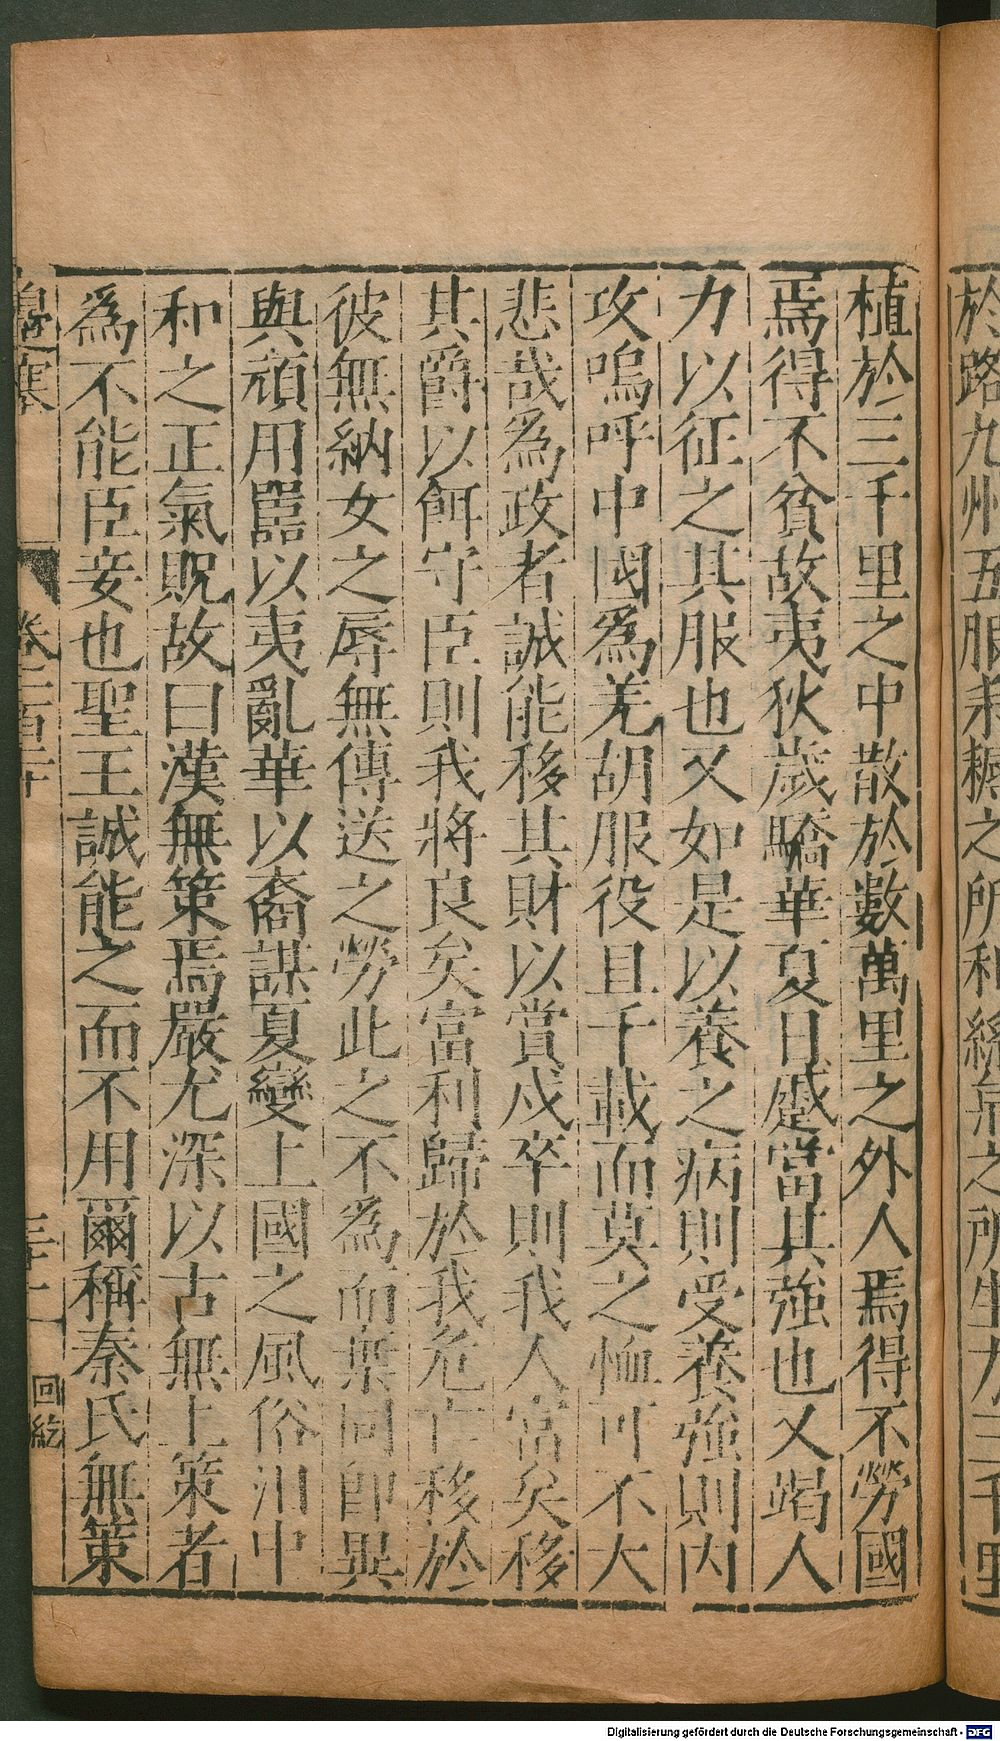 於路九州五服耒耨之所利絲枲之所生方三千里
植於三千里之中散於數萬里之外人焉得不勞國
焉得不貧故夷狄歲驕華夏日蹙當其強也又竭人
力以征之其服也又如是以養之病則受養強則內
攻嗚呼中國爲羌胡服役且千載而莫之恤可不大
悲哉爲政者誠能移其財以賞戍卒則我人富矣移
其爵以餌守臣則我將良矣富利歸於我危亡移於
彼無納女之辱無傳送之勞此之不爲而棄同即異
與頑用嚚以夷亂華以裔謀夏變上國之風俗汨中
和之正氣貺故曰漢無策焉嚴尤深以古無上策者
爲不能臣妾也聖王誠能之而不用爾稱秦氏無策
邊塞
卷二百
回紇
Digitalisierung gefördert durch die Deutsche Forschungsgemeinschaft - DFG